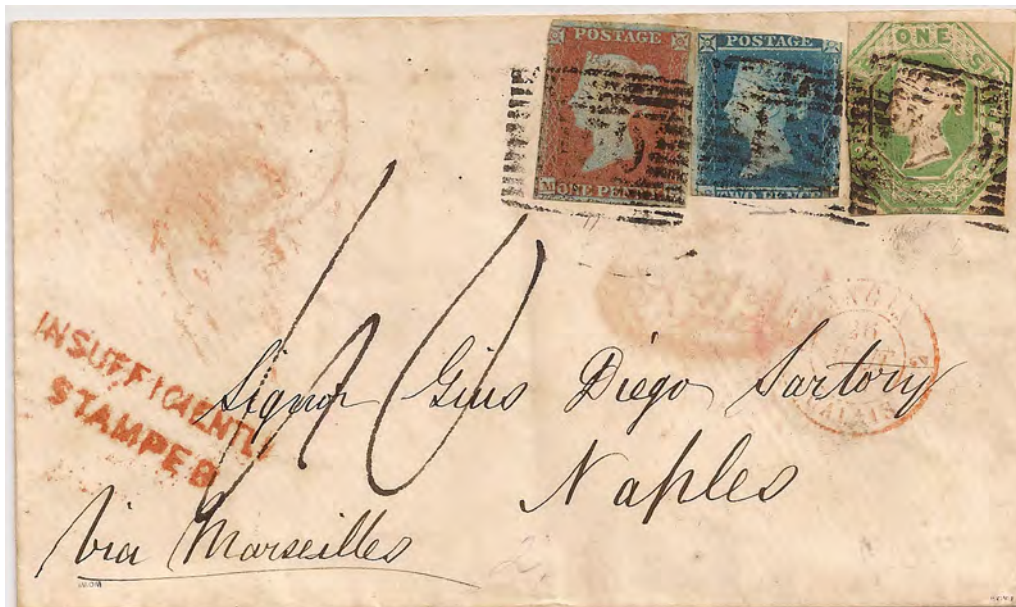 POSTAGE
ONE PENNY
POSTAGE
TWO PENCE
ONE
INSUFFICIENTLY
STAMPED
40
Signor Gius Diego Sartory
Naples
Via Marseilles
CALAIS